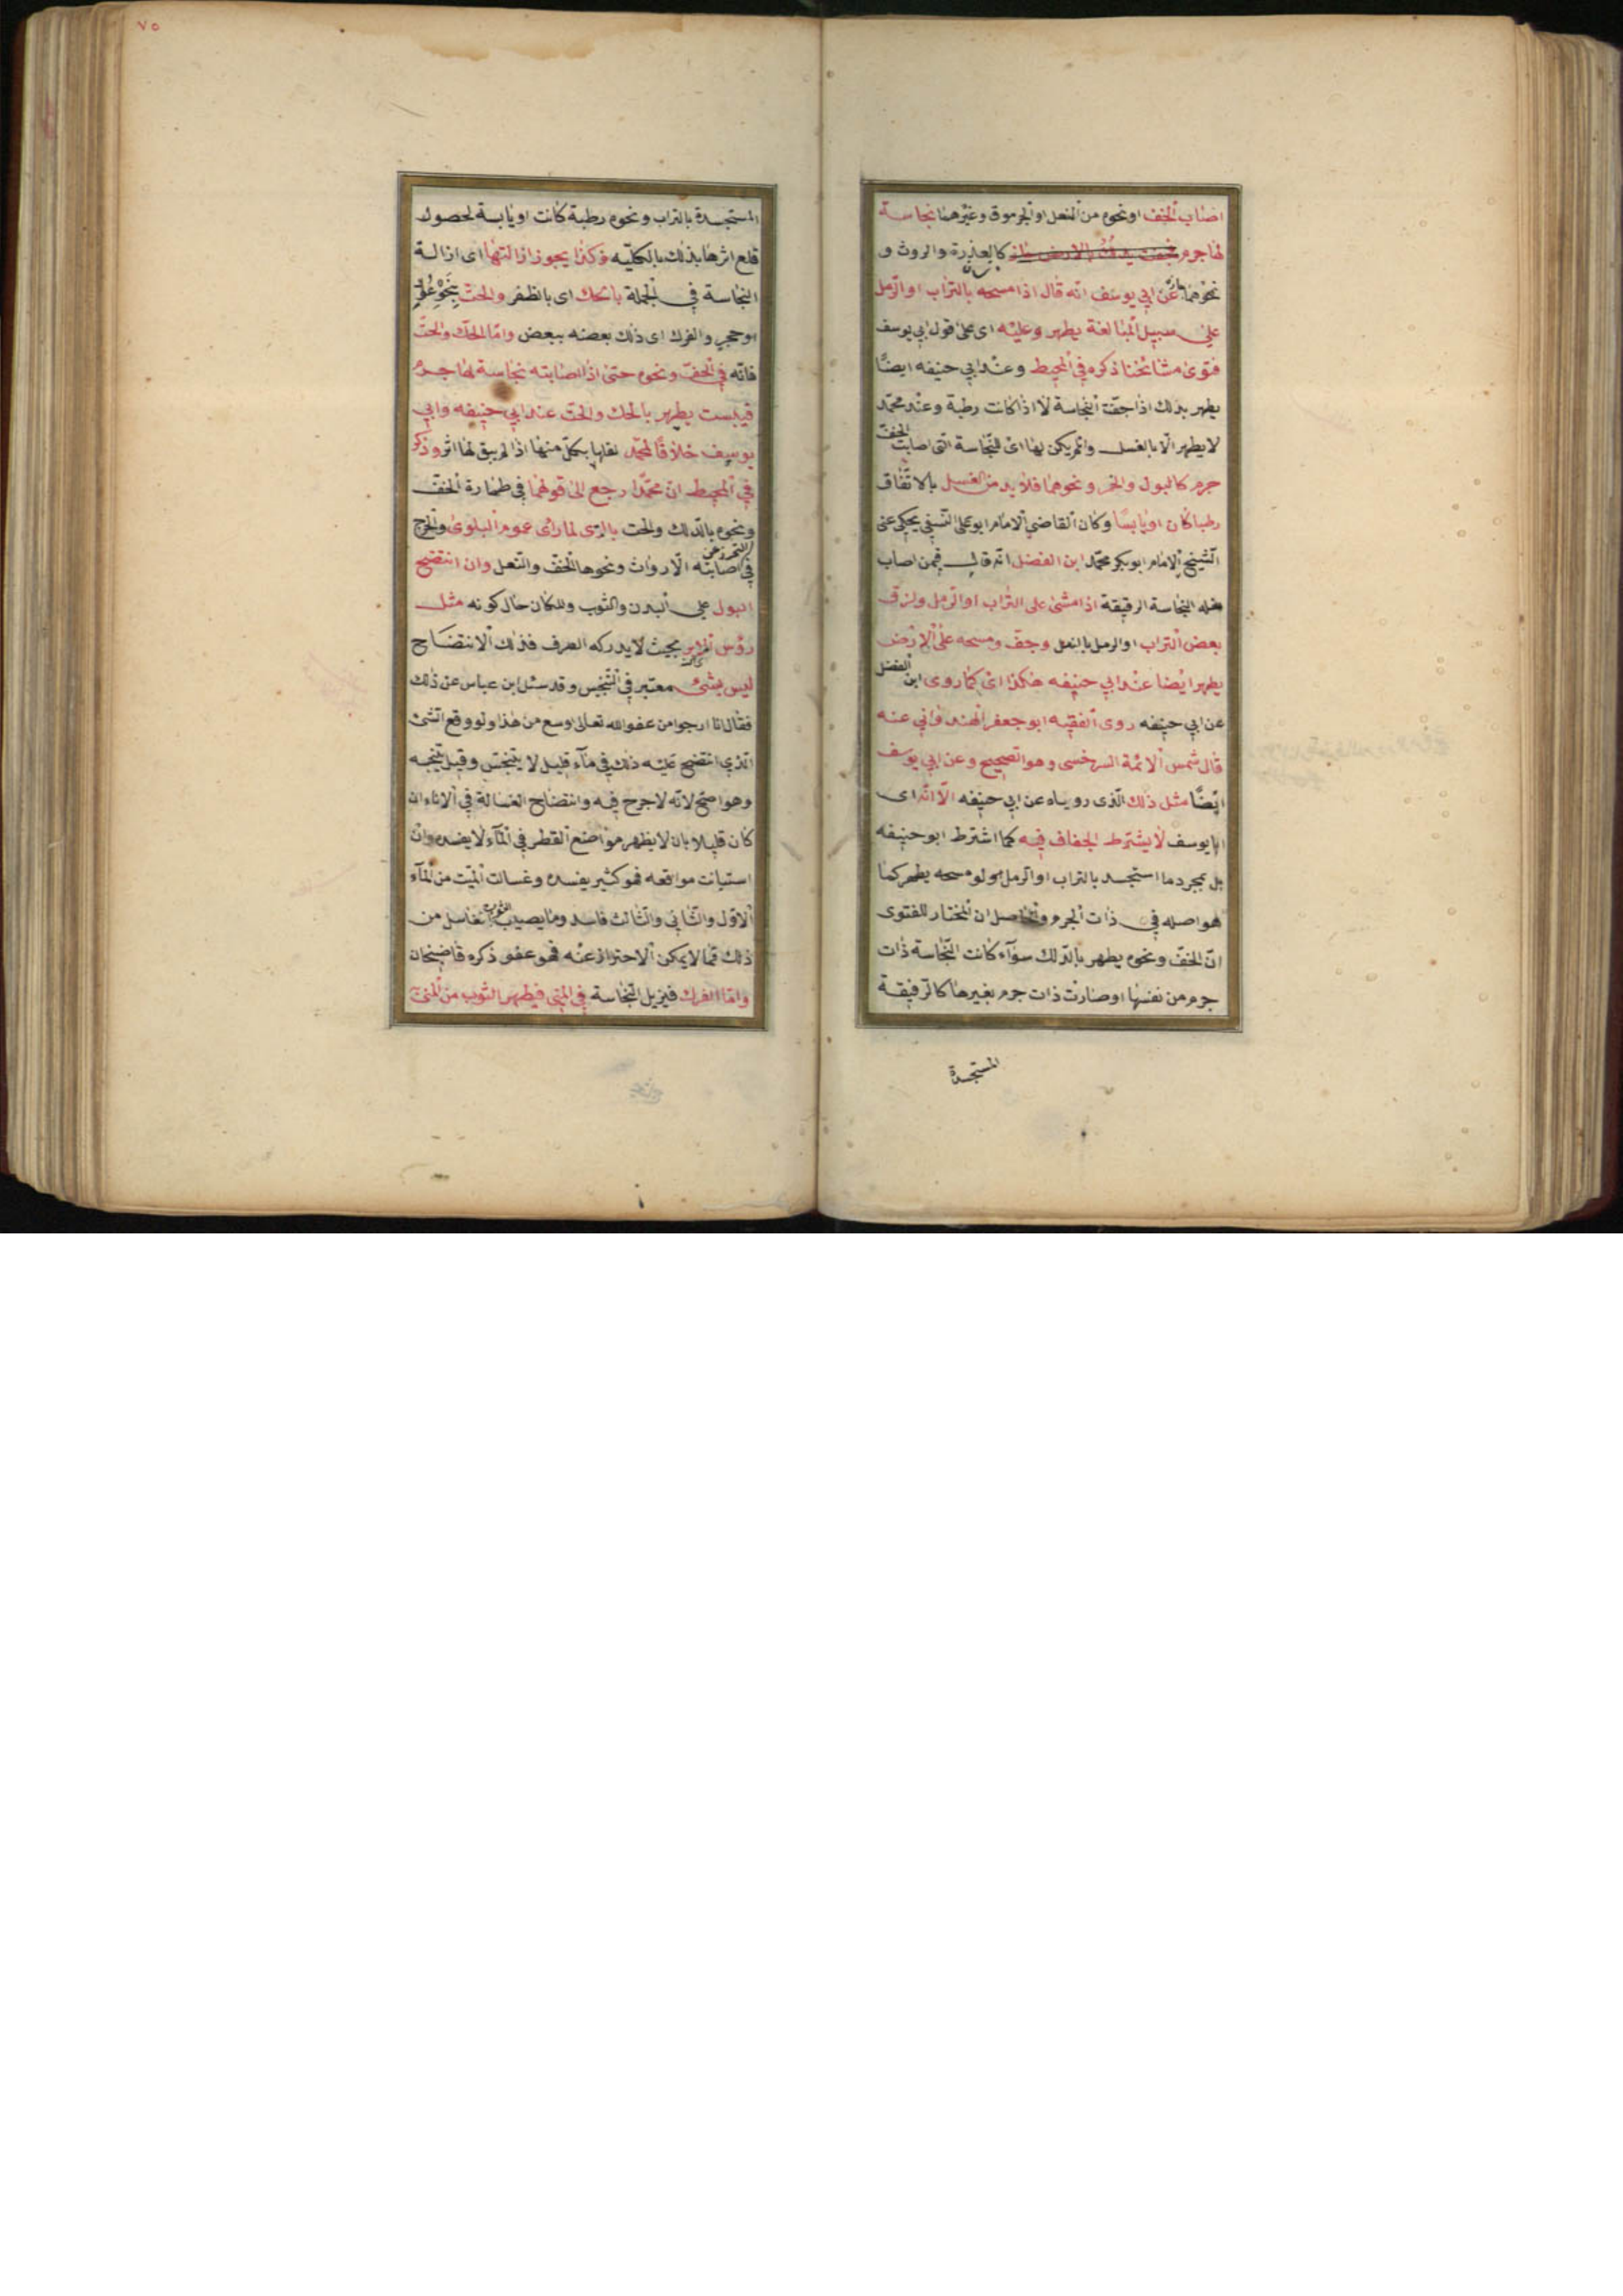 اصاب الخف او نحوه من النعل او الجرموق وغيرهما نجاسة
لها جرم كالعذرة والروث و
نحوهما عن ابي يوسف انه قال اذا مسحه بالتراب او الرمل
على سبيل المبالغة يطهر وعليه اى على قول ابي يوسف
فتوى مشائخنا ذكره في المحيط وعند ابي حنيفه ايضا
يطهر بدلك اذا جفت النجاسة لا اذا كانت رطبة وعند محمد
لا يطهر الا بالغسل وان لم يكن لها اى للنجاسة التى اصابت الخف
جرم كالبول والخمر ونحوهما فلا بد من الغسل بالاتفاق
رطبا كان او يابسا وكان القاضي الامام ابو على النسفي يحكى عن
الشيخ الامام ابو بكر محمد ابن الفضل انه قال فيمن اصاب
نعله النجاسة الرقيقة اذا مشى على التراب او الرمل ولزق
بعض التراب او الرمل بالنعل وجف ومسحه على الارض
يطهر ايضا عند ابي حنيفه هكذا اى كما روى ابن الفضل
عن ابي حنيفه روى الفقيه ابو جعفر الهندواني عنه
قال شمس الائمة السرخسى وهو الصحيح وعن ابي يوسف
ايضا مثل ذلك الذى روياه عن ابي حنيفه الا انه اى
ابا يوسف لا يشترط الجفاف فيه كما اشترط ابو حنيفه
بل بمجرد ما استجسد بالتراب او الرمل ولو مسحه يطهر كما
هو اصله في ذات الجرم والحاصل ان المختار للفتوى
ان الخف ونحوه يطهر بالدلك سوآء كانت النجاسة ذات
جرم من نفسها او صارت ذات جرم بغيرها كالرقيقة
المستجسدة
٧٥
المستجسدة بالتراب ونحوه رطبة كانت او يابسة لحصول
قلع اثرها بذلك بالكليه وكذا يجوز ازالتها اى ازالة
النجاسة في الجملة بالحك اى بالظفر والحت بنحو عود
او حجر والفرك اى دلك بعضه ببعض واما الحك والحت
فانه في الخف ونحوه حتى اذا اصابته نجاسة لها جرم
فيبست يطهر بالحك والحت عند ابي حنيفه وابي
يوسف خلافا لمحمد لقلعها بكل منها اذا لم يبق لها اثر وذكر
في المحيط ان محمدا رجع الى قولهما في طهارة الخف
ونحوه بالدلك والحت بالرى لما راى عموم البلوى والحرج
في التحرز عن اصابته الارواث ونحوها الخف والنعل وان انتضح
البول على البدن والثوب والمكان حال كونه مثل
رؤس الابر بحيث لا يدركه الطرف فذلك الانتضاح
ليس بشئ معتبر في التنجيس وقد سئل ابن عباس عن ذلك
فقال انا ارجوا من عفو الله تعالى اوسع من هذا ولو وقع الشئ
الذي انتضح عليه ذلك في مآء قليل لا يتنجس وقيل ينجسه
وهو اصح لانه لا حرج فيه وانتضاح الغسالة في الاناء ان
كان قليلا بان لا يظهر مواضع القطر في المآء لا يفسده وان
استبانت مواقعه فهو كثير يفسده وغسالت الميت من المآء
الاول والثاني والثالث فاسد وما يصيب الثوب الغاسل من
ذلك مما لا يمكن الاحتراز عنه فهو عفو ذكره قاضيخان
واما الفرك فيزيل النجاسة في المني فيطهر الثوب من المنى